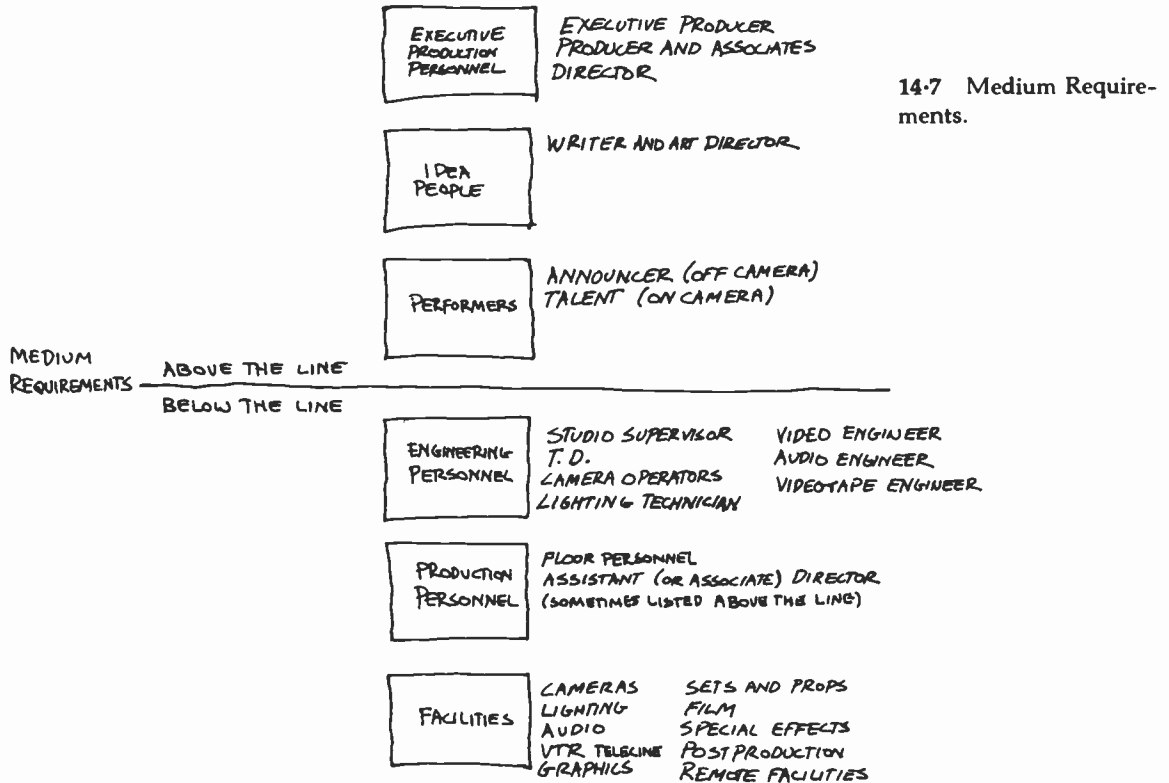 EXECUTIVE
PRODUCTION
PERSONNEL
EXECUTIVE PRODUCER
PRODUCER AND ASSOCIATES
DIRECTOR
14·7 Medium Require-
ments.
IDEA
PEOPLE
WRITER AND ART DIRECTOR
PERFORMERS
ANNOUNCER (OFF CAMERA)
TALENT (ON CAMERA)
MEDIUM
REQUIREMENTS
ABOVE THE LINE
BELOW THE LINE
ENGINEERING
PERSONNEL
STUDIO SUPERVISOR
T. D.
CAMERA OPERATORS
LIGHTING TECHNICIAN
VIDEO ENGINEER
AUDIO ENGINEER
VIDEOTAPE ENGINEER
PRODUCTION
PERSONNEL
FLOOR PERSONNEL
ASSISTANT (OR ASSOCIATE) DIRECTOR
(SOMETIMES LISTED ABOVE THE LINE)
FACILITIES
CAMERAS
LIGHTING
AUDIO
VTR TELECINE
GRAPHICS
SETS AND PROPS
FILM
SPECIAL EFFECTS
POSTPRODUCTION
REMOTE FACILITIES